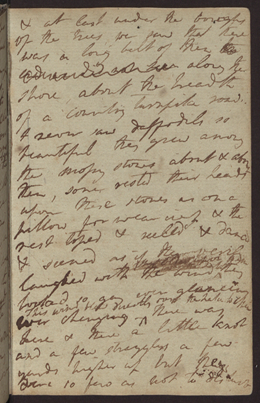 & at last under the boughs
of the trees, we saw that there
was a long belt of them
along the
shore, about the breadth
of a country turnpike road.
I never saw daffodils so
beautiful they grew among
the mossy stones about & about
them, some rested their heads
upon these stones as on a
pillow for weariness & the
rest tossed & reeled & danced
& seemed as if they verily
laughed with the wind
they
looked so gay ever glancing
This wind blew directly over the lake to them
ever changing. There was
here & there a little knot
and a few stragglers a few
yards higher up but they
were so few as not to disturb